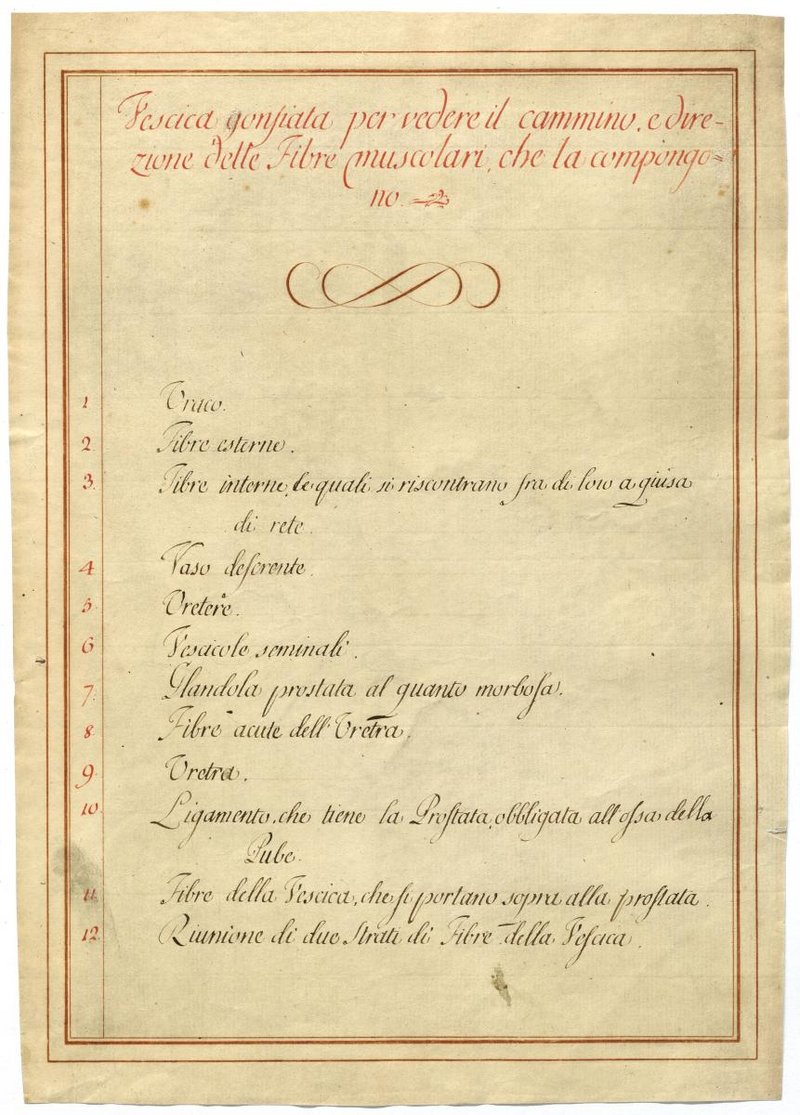 Vescica gonfiata per vedere il cammino, e dire-
zione delle Fibre muscolari, che la compongo=
no.
1 Uraco.
2. Fibre esterne.
3. Fibre interne, le quali si riscontrano fra di loro a guisa
di rete.
4 Vaso deferente.
5. Uretere.
6 Vescicole seminali.
7. Glandola prostata al quanto morbosa.
8. Fibre acute dell'Uretra.
9. Uretra.
10. Ligamento, che tiene la Prostata, obbligata all'ossa della
Pube.
11. Fibre della Vescica, che si portano sopra alla prostata.
12. Riunione di due Strati di Fibre della Vescica.